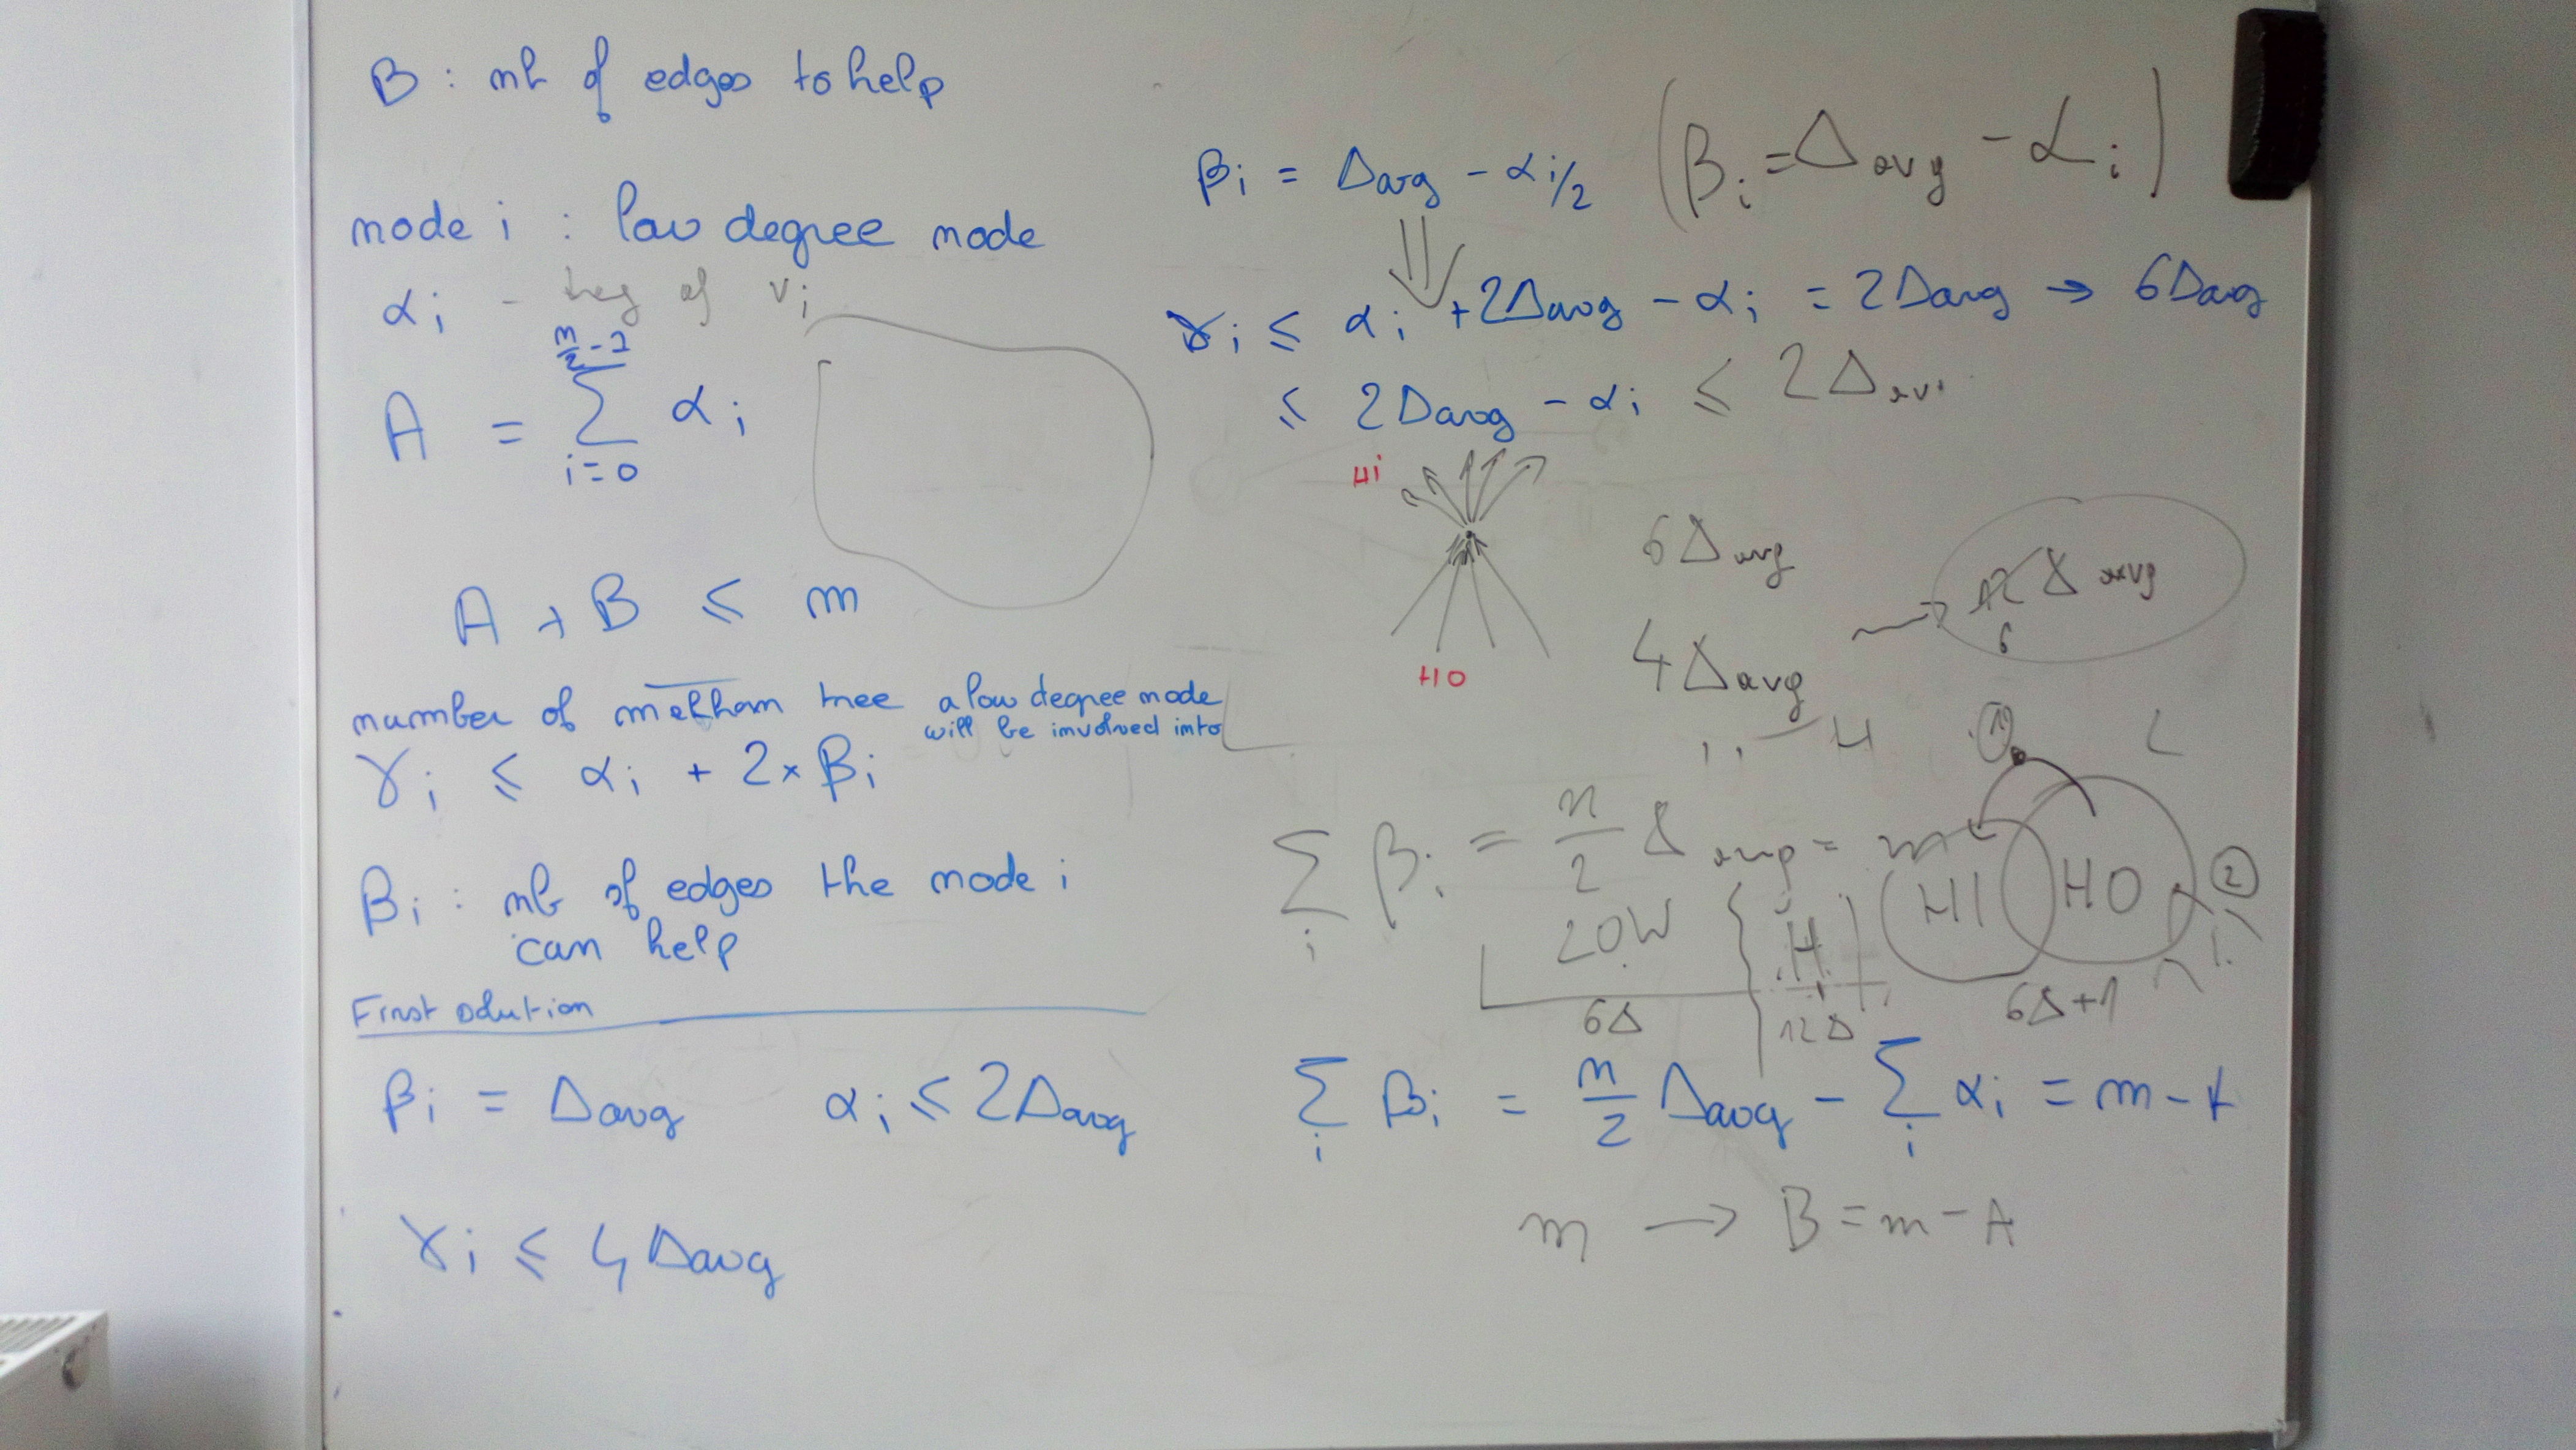 B : nb of edges to help
node i : low degree node
αi - deg of vi
A = ∑_{i=0}^{n/2 - 1} αi
A + B ≤ m
number of mehlhorn tree a low degree node
will be involved into
γi ≤ αi + 2 × βi
βi : nb of edges the node i
can help
First solution
βi = Δavg αi ≤ 2Δavg
γi ≤ 4Δavg
βi = Δavg - αi/2 (βi = Δavg - αi)
⇓
γi ≤ αi + 2Δavg - αi = 2Δavg → 6Δavg
≤ 2Δavg - αi ≤ 2Δav.
Hi
HO
6Δavg
4Δavg → 12 Δavg
6
H 1 L
∑i βi = n/2 Δavg = m
LOW H HI HO 2
6Δ 12Δ 6Δ+1
∑i βi = n/2 Δavg - ∑i αi = m - A
m → B = m - A